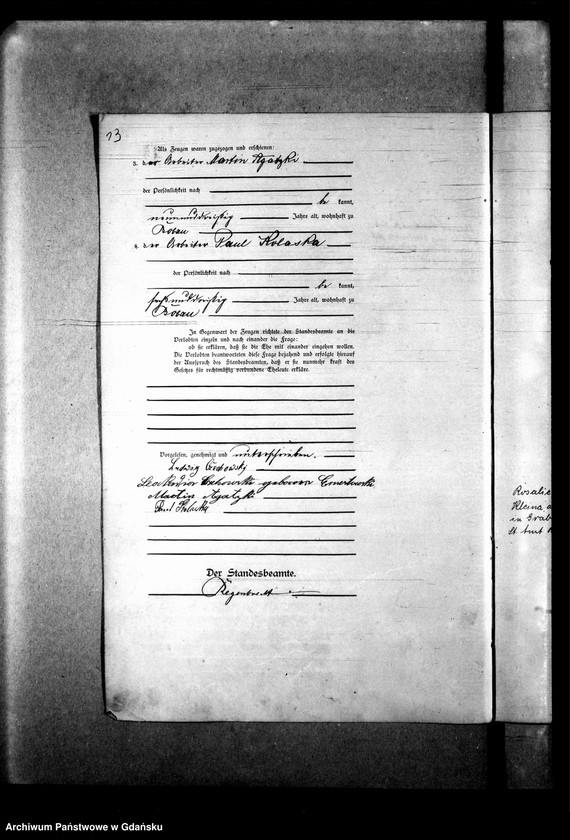 13
Als Zeugen waren zugezogen und erschienen:
3. der Arbeiter Martin Agatzki
der Persönlichkeit nach
be kannt,
neununddreißig Jahre alt, wohnhaft zu
4. der Arbeiter Paul Kolaska
der Persönlichkeit nach
be kannt,
sechsunddreißig Jahre alt, wohnhaft zu
In Gegenwart der Zeugen richtete der Standesbeamte an die
Verlobten einzeln und nach einander die Frage:
ob sie erklären, daß sie die Ehe mit einander eingehen wollen.
Die Verlobten beantworteten diese Frage bejahend und erfolgte hierauf
der Ausspruch des Standesbeamten, daß er sie nunmehr kraft des
Gesetzes für rechtmäßig verbundene Eheleute erkläre.
Vorgelesen, genehmigt und unterschrieben.
Ludwig
geborene
Martin Agatzki
Paul Kolaska
Der Standesbeamte.
Rosalie
Kleina
in Grab
St. Amt
Archiwum Państwowe w Gdańsku